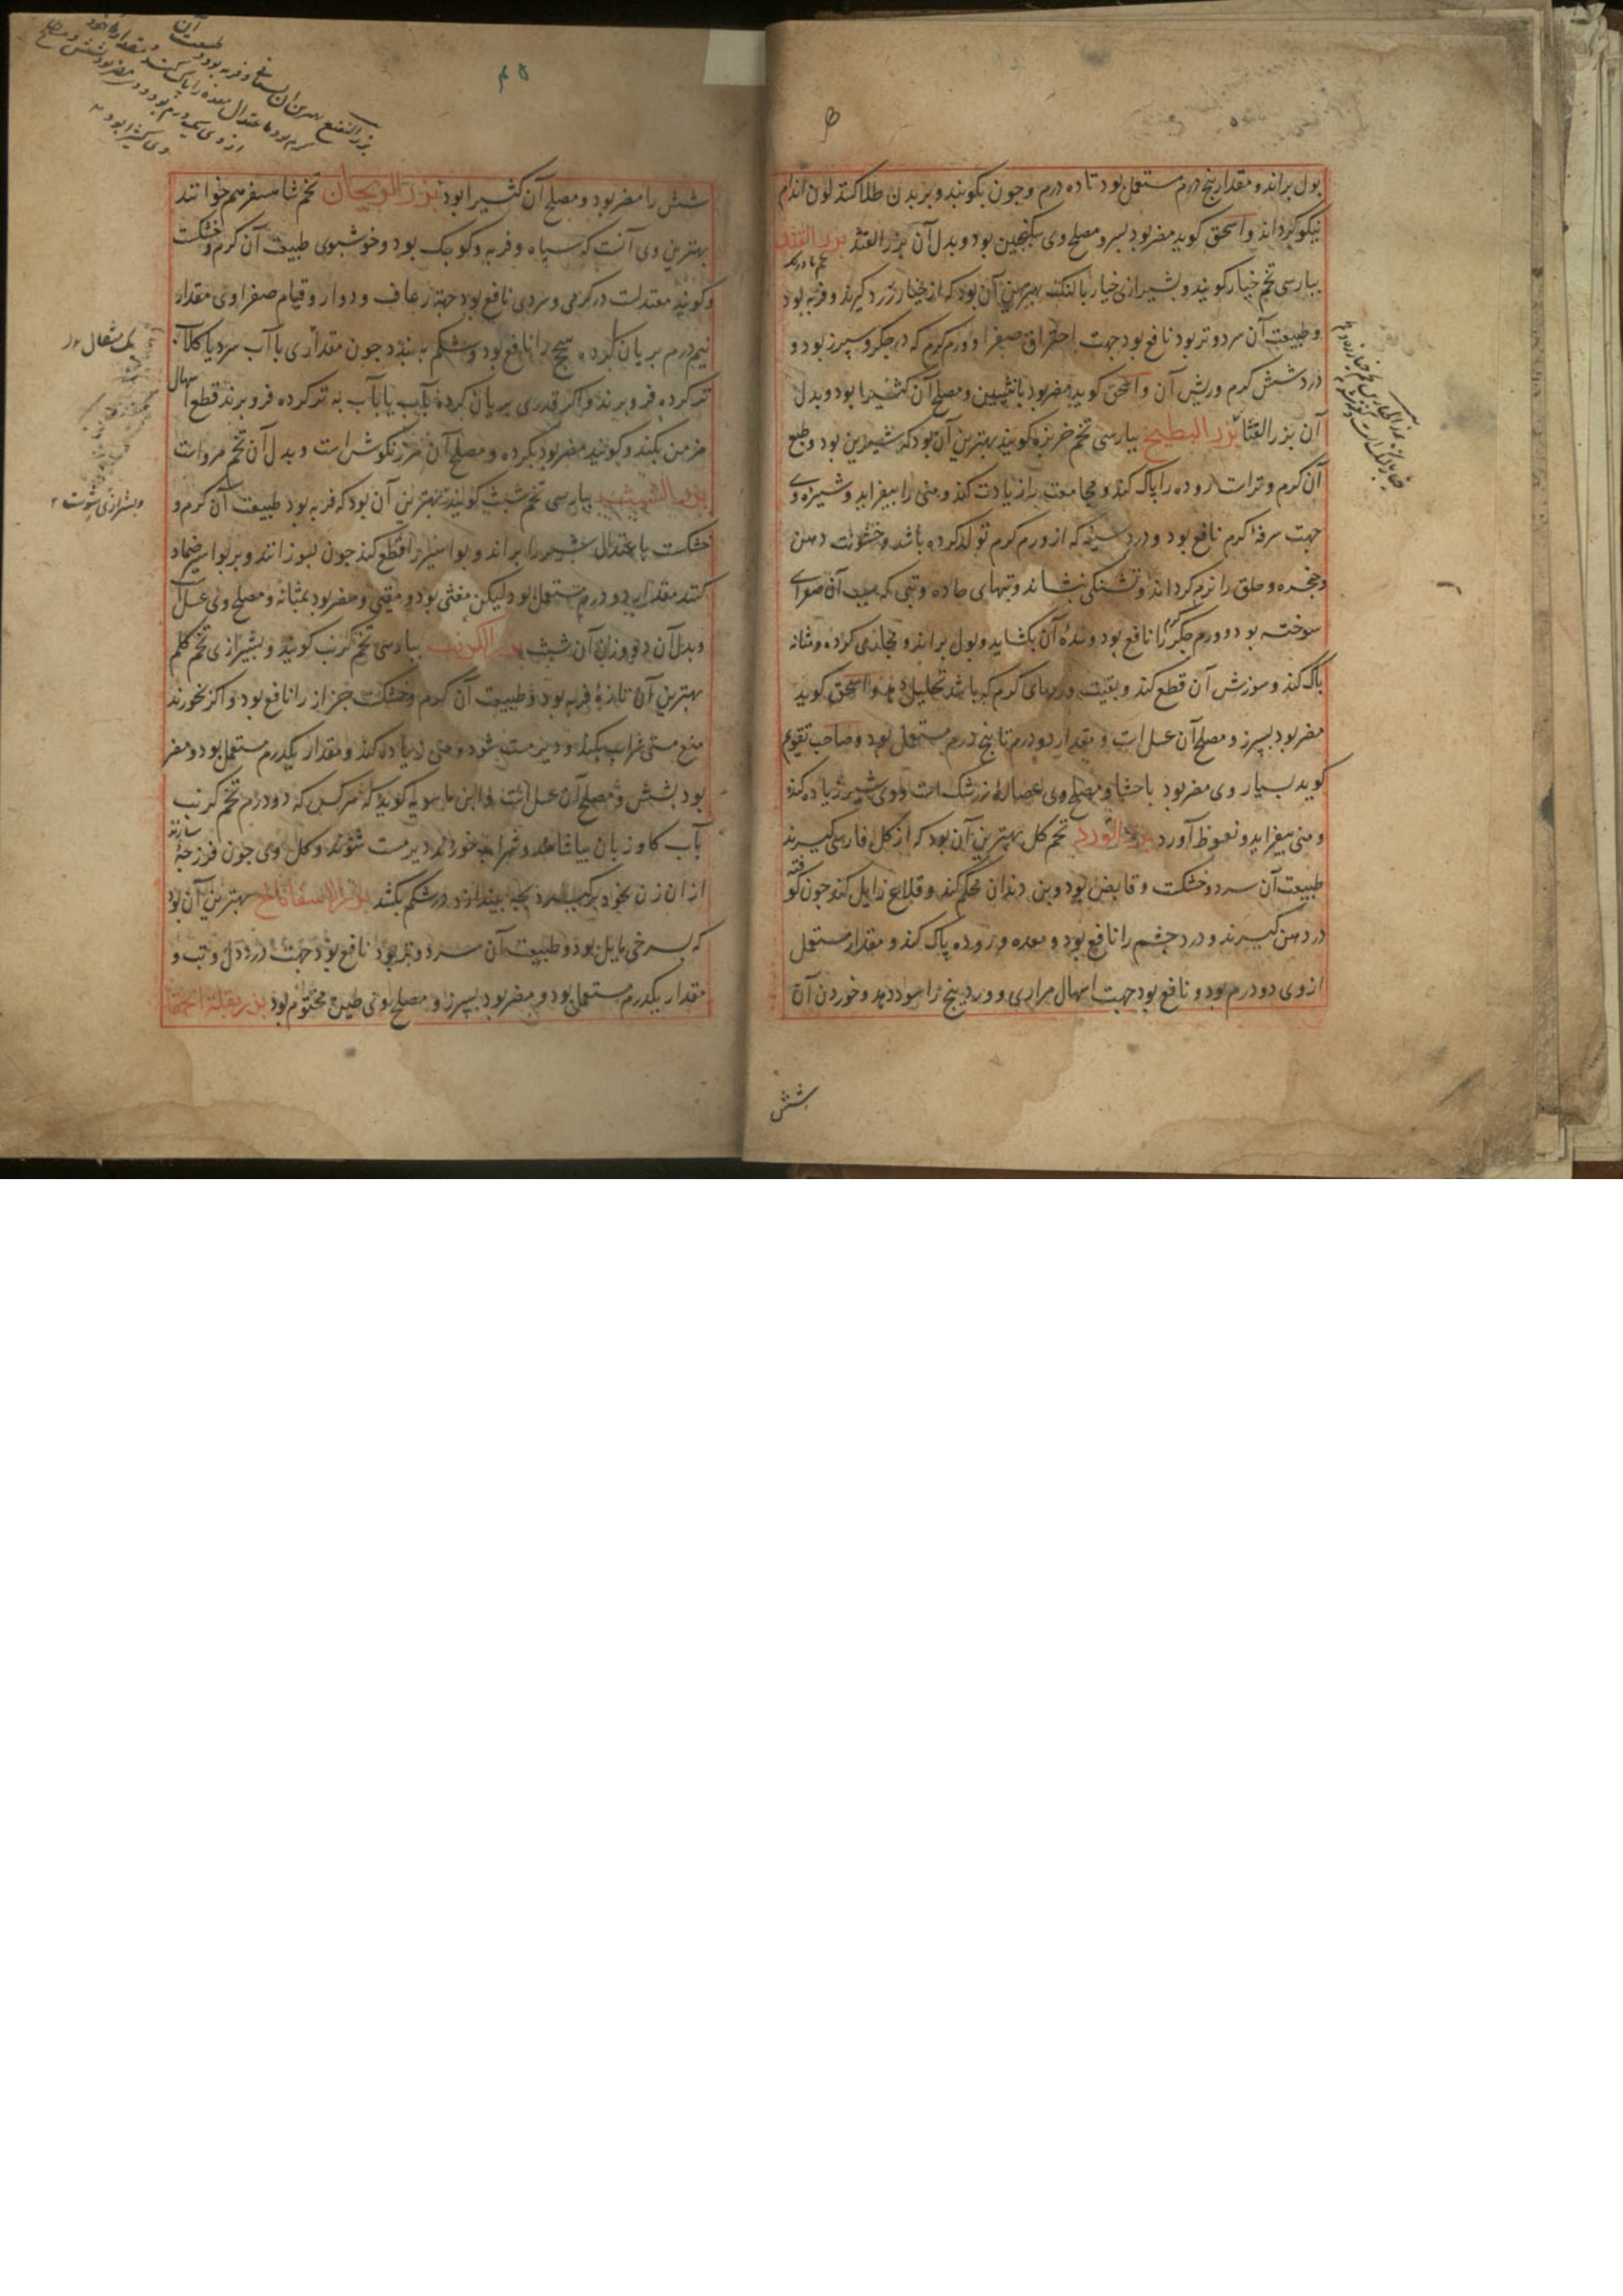 بول براند و مقدار پنج درم مستعمل بود تا ده درم و چون بکوبند و بر بدن طلا کنند لون اندام
نیکو گرداند و اسحق گوید مضر بود بسپر و مصلح وی سکنجبین بود و بدل آن بزر القثد بزر القثد
بپارسی تخم خیار گویند و بشیرازی خیار بالنک بهترین آن بود که از خیار زرد گیرند و فربه بود
و طبیعت آن سرد و تر بود نافع بود جهت احتراق صفرا و ورم گرم که در جگر و سپرز بود و
درد شش گرم و ریش آن و اسحق گوید مضر بود بانثیین و مصلح آن کثیرا بود و بدل
آن بزر القثا بزر البطیخ بپارسی تخم خربزه گویند بهترین آن بود که شیرین بود و طبع
آن گرم و تر است روده را پاک کند و مجامعت را زیادت کند و منی را بیفزاید و شیره وی
جهت سرفه گرم نافع بود و درد سینه که از ورم گرم تولد کرده باشد و خشونت دهن
و حنجره و حلق را نرم گرداند و تشنگی بنشاند و تبهای حاده و تبی که سبب آن صفرای
سوخته بود و ورم جگر گرم را نافع بود و سده آن بگشاید و بول براند و مجاری گرده و مثانه
پاک کند و سوزش آن قطع کند و بقیت ورمهای گرم که باشد تحلیل دهد و اسحق گوید
مضر بود بسپرز و مصلح آن عسل است و مقدار دو درم تا پنج درم مستعمل بود و صاحب تقویم
گوید بسیار وی مضر بود باحشا و مصلح وی عصاره زرشک است و وی شیر زیاده کند
و منی بیفزاید و نعوظ آورد بزر الورد تخم گل بهترین آن بود که از گل فارسی گیرند
طبیعت آن سرد و خشکست و قابض بود و بن دندان محکم کند و قلاع زایل کند چون کوفته
در دهن گیرند و درد چشم را نافع بود و معده و روده پاک کند و مقدار مستعمل
از وی دو درم بود و نافع بود جهت اسهال مراری و ورد پنج را سود دهد و خوردن آن
شش
شش را مضر بود و مصلح آن کثیرا بود بزر الریحان تخم شاهسفرهم خوانند
بهترین وی آنست که سیاه و فربه و کوچک بود و خوشبوی طبیعت آن گرم و خشکست
و گویند معتدلست در گرمی و سردی نافع بود جهة رعاف و دوار و قیام صفراوی مقدار
نیم درم بریان کرده سحج را نافع بود و شکم ببندد چون مقداری با آب سرد یا گلاب
تر کرده فرو برند و اگر قدری بریان کرده بآب یا بآب به تر کرده فرو برند قطع اسهال
مزمن بکند و گویند مضر بود بگرده و مصلح آن مرزنگوش است و بدل آن تخم مرو است
بزر الشبث بپارسی تخم شبث گویند بهترین آن بود که فربه بود طبیعت آن گرم و
خشکست باعتدال شیر را براند و بواسیر را قطع کند چون بسوزانند و بر بواسیر ضماد
کنند مقدار دو درم مستعمل بود لیکن مغثی بود و مقیی و مضر بود بمثانه و مصلح وی عسل
و بدل آن دو وزن آن شبث بزر الکرنب بپارسی تخم کرنب گویند و بشیرازی تخم کلم
بهترین آن تازه فربه بود و طبیعت آن گرم و خشکست جزاز را نافع بود و اگر بخورند
منع مستی شراب بکند و دیر مست شود و منی زیاده کند و مقدار یکدرم مستعمل بود و مضر
بود بشش و مصلح آن عسل است و ابن ماسویه گوید که هر کس که دو درم تخم کرنب
بآب گاو زبان بیاشامد و شراب خورد دیر مست شوند و گل وی چون فرزجه سازند
از آن زن بخود برگیرد بچه بیندازد در شکم بکشد بزر الاسفاناخ بهترین آن بود
که بسرخی مایل بود و طبیعت آن سرد و تر بود نافع بود جهت درد دل و تب و
مقدار یکدرم مستعمل بود و مضر بود بسپرز و مصلح وی طین مختوم بود بزر بقلة الحمقا
یک مثقال
و بشیرازی شوت